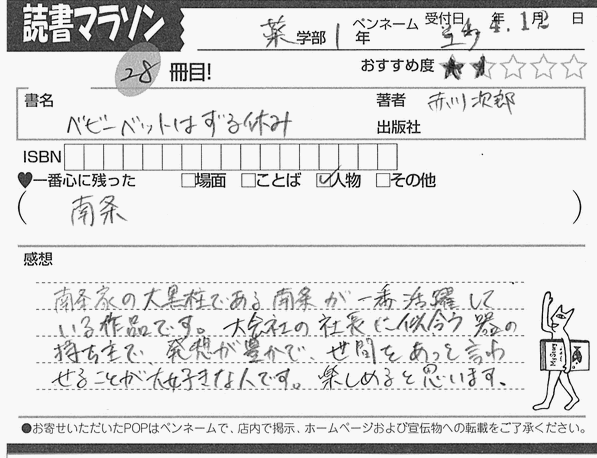 読書マラソン
薬 学部 1 年 ペンネーム 受付日 4年 1月 12日
28 冊目! おすすめ度 ★★☆☆☆
書名 ベビーベットはずる休み 著者 赤川次郎
出版社
ISBN
♥一番心に残った □場面 □ことば ☑人物 □その他
(南条)
感想
南条家の大黒柱である南条が一番活躍して
いる作品です。大会社の社長に似合う器の
持ち主で、発想が豊かで、世間をあっと言わ
せることが大好きな人です。楽しめると思います。
●お寄せいただいたPOPはペンネームで、店内で掲示、ホームページおよび宣伝物への転載をご了承ください。